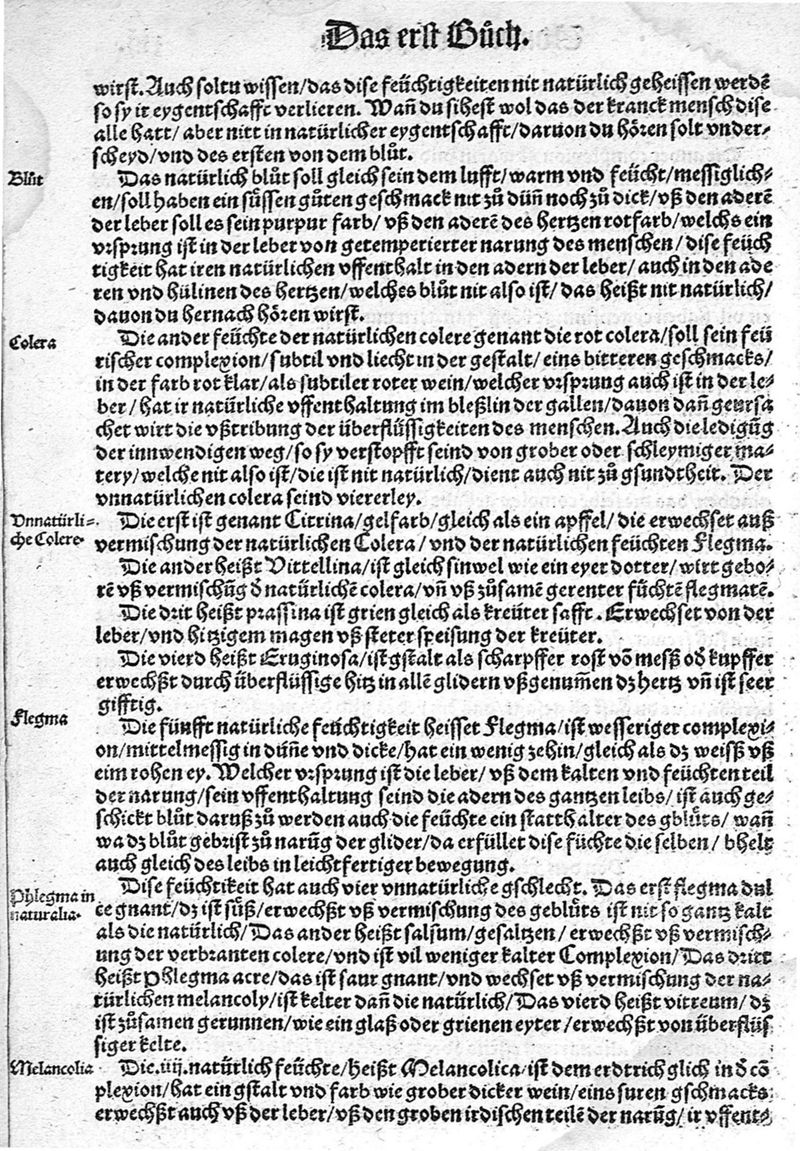 Das erst Bůch.
wirst. Auch soltu wissen/das dise feüchtigkeiten nit natürlich geheissen werdē
so sy ir eygentschafft verlieren. Wañ du sihest wol das der kranck mensch dise
alle hatt/ aber nitt in natürlicher eygentschafft/daruon du hören solt vnder⸗
scheyd/vnd des ersten von dem blůt.
Blůt
Das natürlich blůt soll gleich sein dem lufft/warm vnd feücht/messiglich⸗
en/soll haben ein süssen gůten geschmack nit zů dün̄ noch zů dick/vß den aderē
der leber soll es sein purpur farb/ vß den aderē des hertzen rotfarb/welchs ein
vrsprung ist in der leber von getemperierter narung des menschen/dise feüch
tigkeit hat iren natürlichen vffenthalt in den adern der leber/auch in den ade
ren vnd hülinen des hertzen/welches blůt nit also ist/das heißt nit natürlich/
dauon du hernach hören wirst.
Colera
Die ander feüchte der natürlichen colere genant die rot colera/soll sein feü
rischer complexion/subtil vnd liecht in der gestalt/eins bitteren geschmacks/
in der farb rot klar/als subtiler roter wein/welcher vrsprung auch ist in der le⸗
ber/hat ir natürliche vffenthaltung im bleßlin der gallen/dauon dañ geursa
chet wirt die vßtribung der überflüssigkeiten des menschen. Auch die ledigūg
der innwendigen weg/so sy verstopfft seind von grober oder schleymiger ma⸗
tery/welche nit also ist/die ist nit natürlich/dient auch nit zů gsundtheit. Der
vnnatürlichen colera seind viererley.
Vnnatürli⸗
che Colere.
Die erst ist genant Citrina/gelfarb/gleich als ein apffel/die erwechset auß
vermischung der natürlichen Colera/vnd der natürlichen feüchten Flegma.
Die ander heißt Vittellina/ist gleich sinwel wie ein eyer dotter/wirt gebo⸗
rē vß vermischūg ď natürlichē colera/vñ vß zůsamē gerenter füchtē flegmatē.
Die drit heißt prassina ist grien gleich als kreüter safft. Erwechset von der
leber/vnd hitzigem magen vß steter speisung der kreüter.
Die vierd heißt Eruginosa/ist gstalt als scharpffer rost vō meß̄ oď kupffer
erwechßt durch überflüssige hitz in allē glidern vßgenum̄en dz hertz vñ ist seer
gifftig.
Flegma
Die fünfft natürliche feüchtigkeit heisset Flegma/ist wesseriger complexi⸗
on/mittelmessig in dün̄e vnd dicke/hat ein wenig zehin/gleich als dz weisß vß
eim rohen ey. Welcher vrsprung ist die leber/vß dem kalten vnd feüchten teil
der narung/sein vffenthaltung seind die adern des gantzen leibs/ist auch ge⸗
schickt blůt daruß zů werden auch die feüchte ein statthalter des gblůts/wañ
wa dz blůt gebrist zů narūg der glider/da erfüllet dise füchte die selben/bhelt
auch gleich des leibs in leichtfertiger bewegung.
Phlegma in
naturalia.
Dise feüchtikeit hat auch vier vnnatürliche gschlecht. Das erst flegma dul
ce gnant/dz ist süß/erwechßt vß vermischung des geblůts ist nit so gantz kalt
als die natürlich/Das ander heißt salsum/gesaltzen/erwechßt vß vermisch⸗
ung der verbranten colere/vnd ist vil weniger kalter Complexion/Das dritt
heißt Phlegma acre/das ist saur gnant/vnd wechset vß vermischung der na⸗
türlichen melancoly/ist kelter dañ die natürlich/Das vierd heißt vitreum/dz
ist zůsamen gerunnen/wie ein glaß oder grienen eyter/erwechßt von überflüs
siger kelte.
Melancolia
Die.iiij.natürlich feüchte/heißt Melancolica/ist dem erdtrich glich in ď cō
plexion/hat ein gstalt vnd farb wie grober dicker wein/eins suren gschmacks
erwechßt auch vß der leber/vß den groben irdischen teilē der narūg/ir vffent⸗